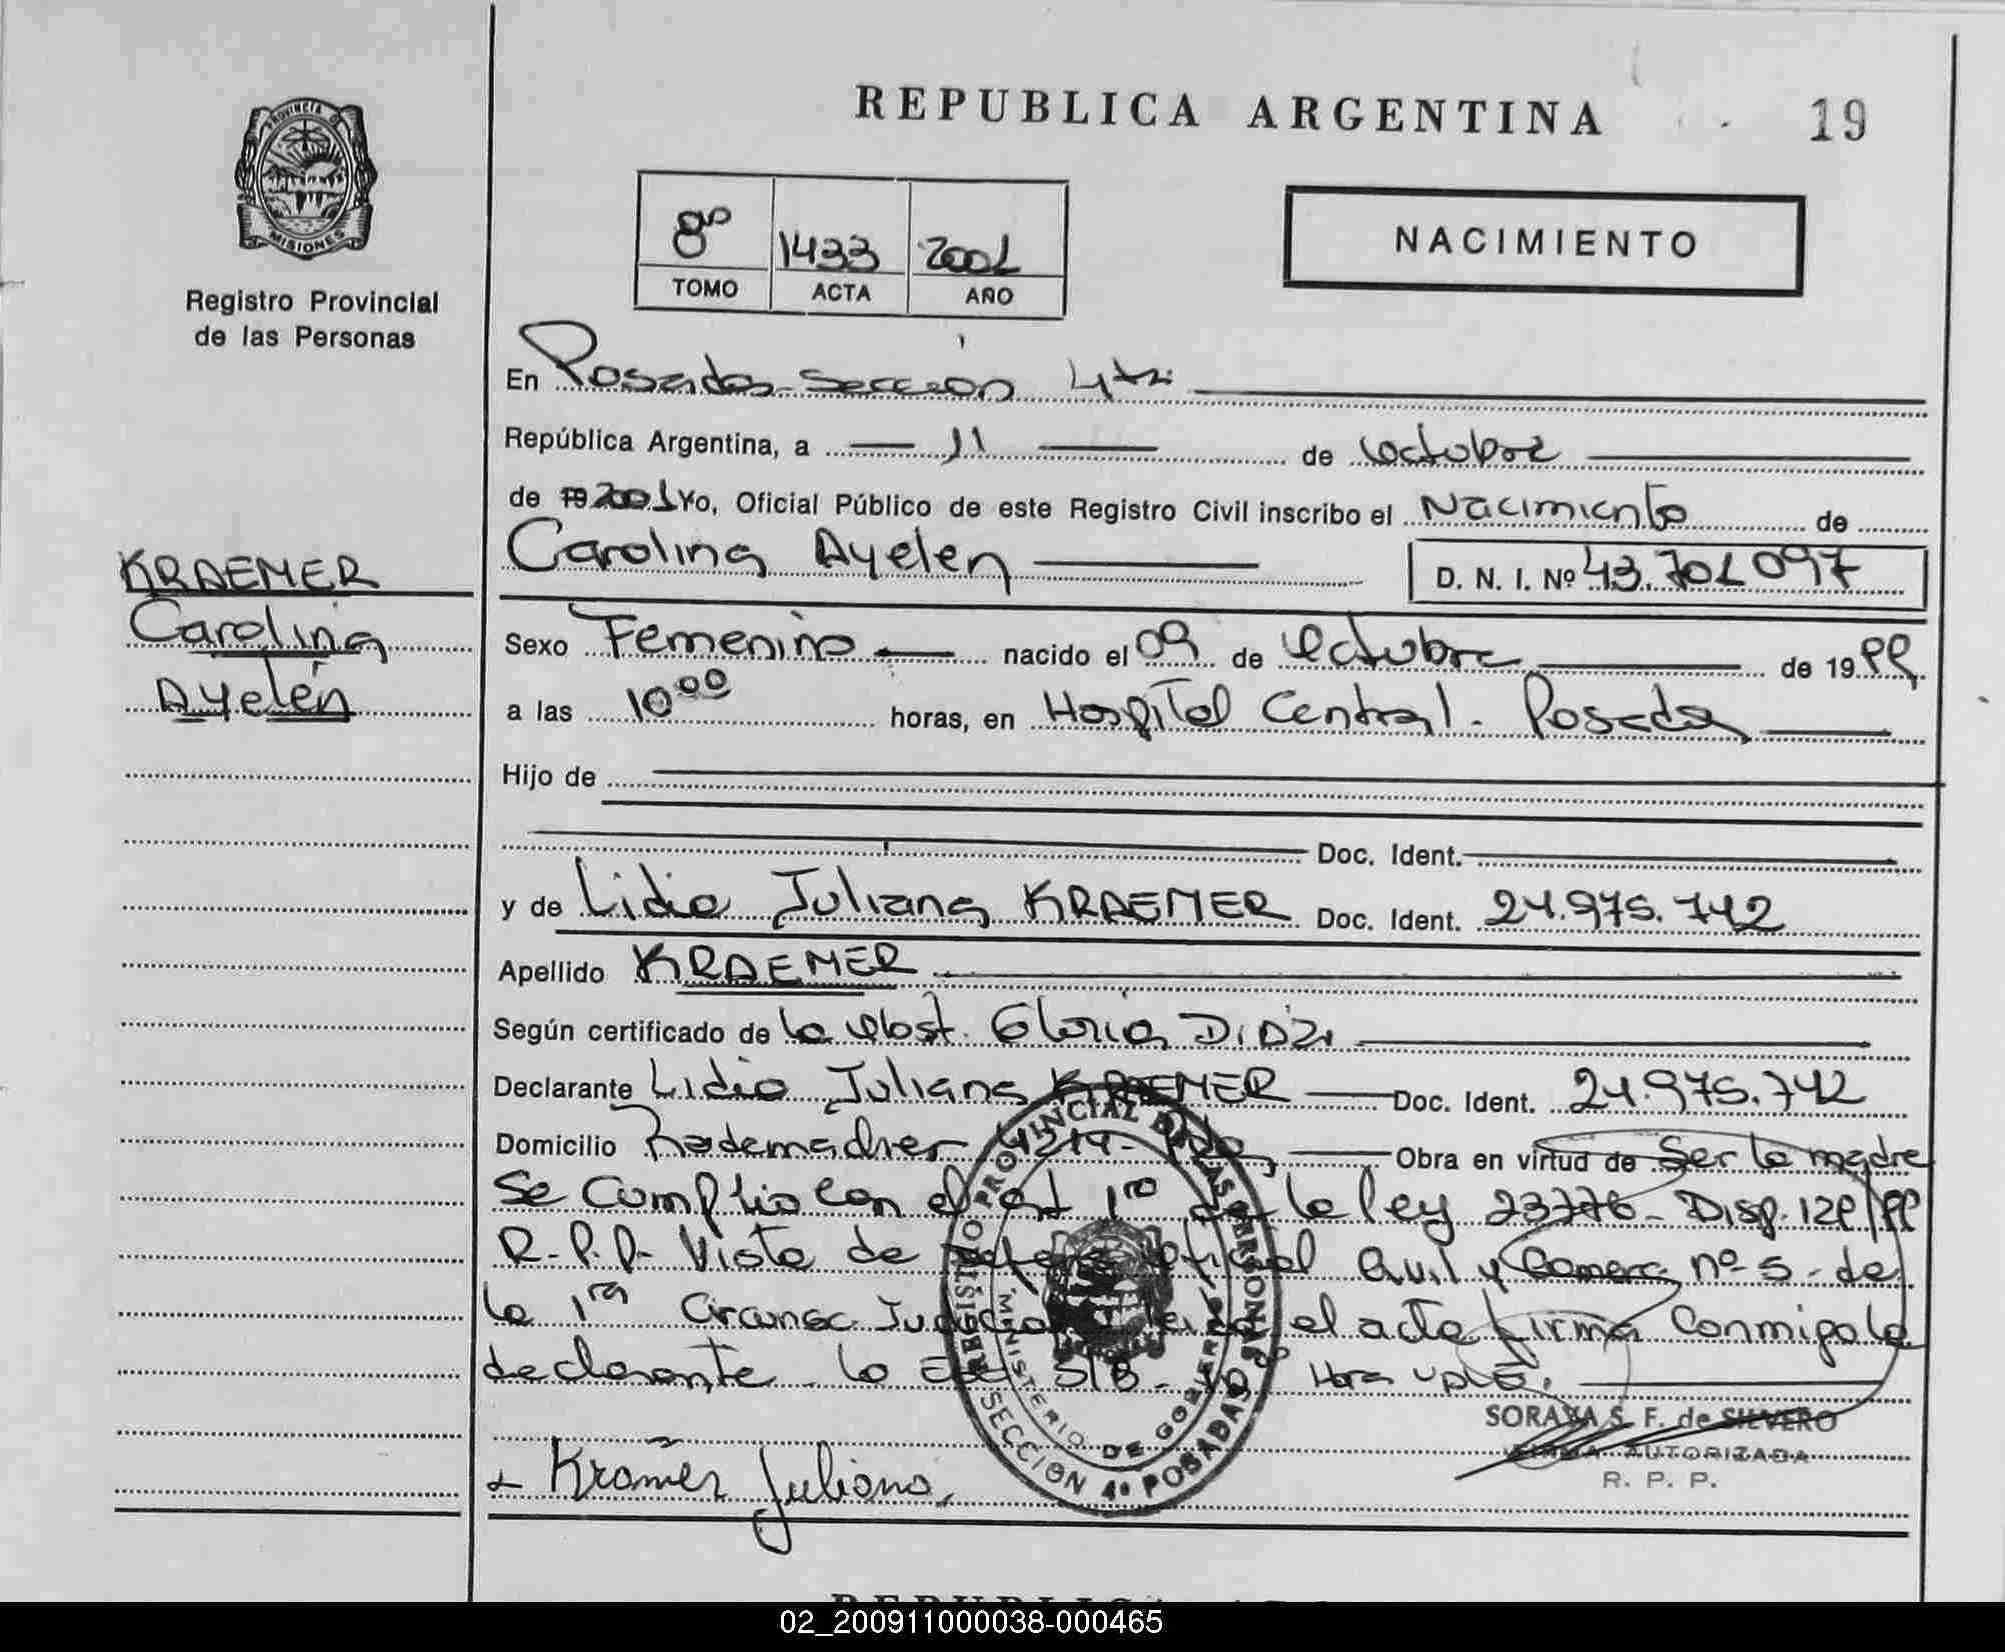 REPUBLICA ARGENTINA
19
PROVINCIA DE
MISIONES
Registro Provincial
de las Personas
8º 1433 2001
TOMO ACTA AÑO
NACIMIENTO
En Posadas sección 4ta
República Argentina, a 11 de octubre
de 19 2001 Yo, Oficial Público de este Registro Civil inscribo el Nacimiento de
Carolina Ayelen D. N. I. Nº 43.701.097
KRAEMER
Carolina
Ayelén
Sexo Femenino nacido el 09 de octubre de 19 99
a las 10 00 horas, en Hospital Central - Posadas
Hijo de
Doc. Ident.
y de Lidia Juliana KRAEMER Doc. Ident. 24.975.742
Apellido KRAEMER
Según certificado de la obst. Gloria DIAZ
Declarante Lidia Juliana KRAEMER Doc. Ident. 24.975.742
Domicilio Rademacher Obra en virtud de Ser la madre
Se cumplio con el art 1ro de la ley 23776 - Disp. 129/99
R.P.P - Vista de oficial Civil y Comerc nº 5 - de
la 1ra Circunsc Judicial leida el acta firma conmigo la
declarante - lo S/B - Hora
REGISTRO PROVINCIAL DE LAS PERSONAS
MINISTERIO DE GOBIERNO
SECCION 4ª POSADAS
SORAYA S. F. de SILVERO
FIRMA AUTORIZADA
R. P. P.
Kramer Juliana.
02_200911000038-000465